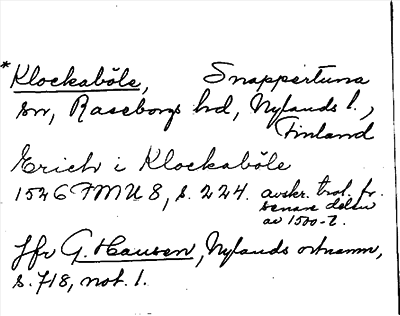 * Klockaböle, Snappertuna
sn, Raseborgs hd, Nylands l.,
Finland
Erich i Klockaböle
1526 FMU 8, s. 224. avskr. trol. fr.
senare delen
av 1500-t.
Jfr G. Hausen, Nylands ortnamn,
s. 718, not. 1.